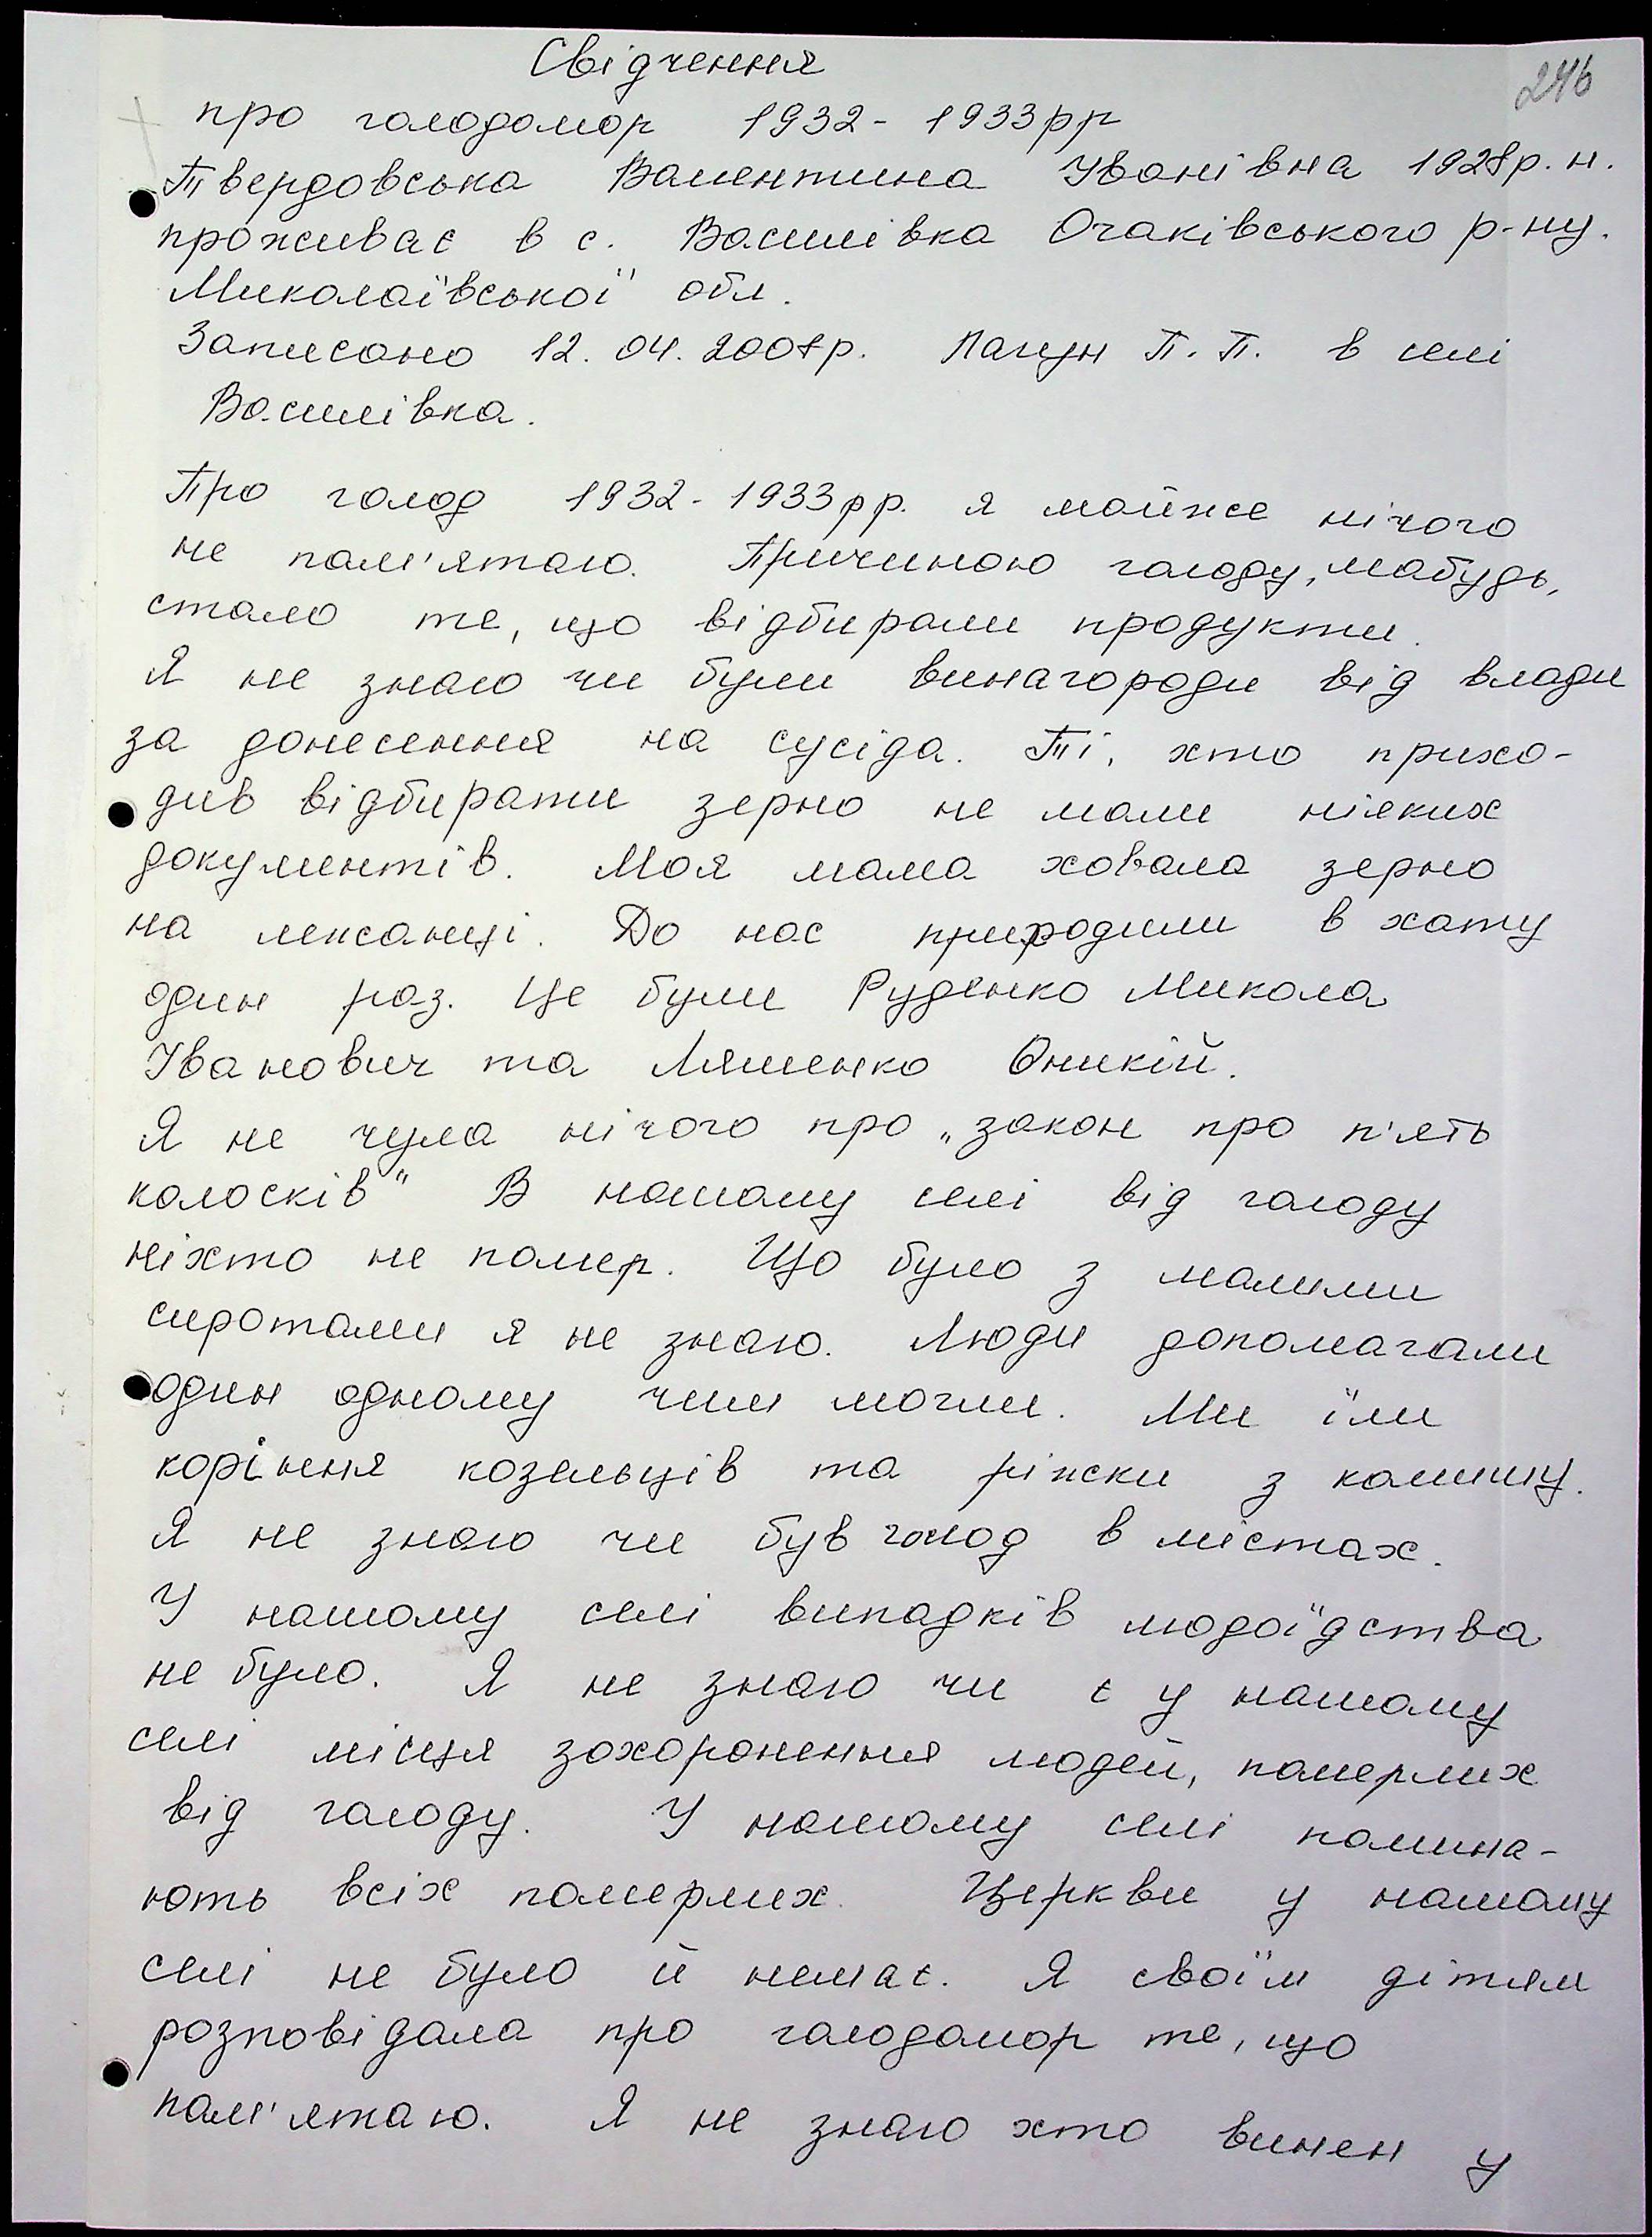 246
Свідчення
про голодомор 1932-1933рр
Твердовська Валентина Іванівна 1928р.н.
проживає в с. Василівка Очаківського р-ну.
Миколаївської обл.
Записано 12.04.2008р. Лагун П.П. в селі
Василівка.
Про голод 1932-1933рр. я майже нічого
не пам'ятаю. Причиною голоду, мабудь,
стало те, що відбирали продукти.
Я не знаю чи були винагороди від влади
за донесення на сусіда. Ті, хто прихо-
див відбирати зерно не мали ніяких
документів. Моя мама ховала зерно
на лежанці. До нас приходили в хату
один раз. Це були Руденко Микола
Іванович та Ляшенко Оникій.
Я не чула нічого про „закон про п'ять
колосків" В нашому селі від голоду
ніхто не помер. Що було з малими
сиротами я не знаю. Люди допомагали
один одному чим могли. Ми їли
коріння козельців та ріжки з комишу.
Я не знаю чи був голод в містах.
У нашому селі випадків людоїдства
не було. Я не знаю чи є у нашому
селі місця захоронення людей, померлих
від голоду. У нашому селі помина-
ють всіх померлих. Церкви у нашому
селі не було й немає. Я своїм дітям
розповідала про голодомор те, що
пам'ятаю. Я не знаю хто винен у